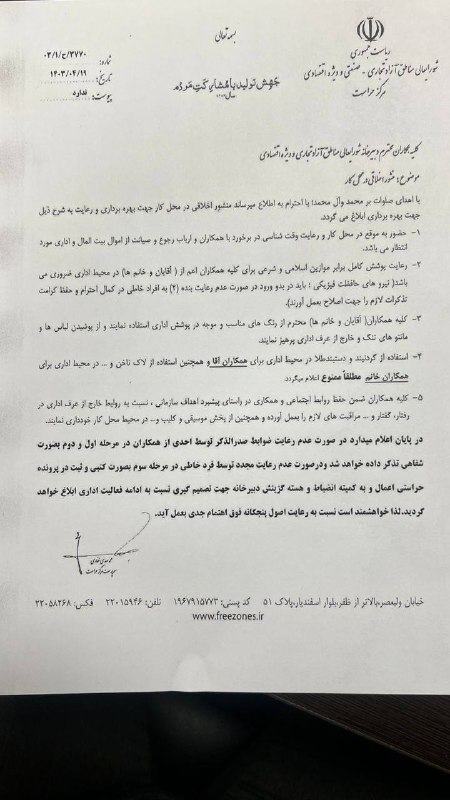 بسمه تعالی
ریاست جمهوری
شورایعالی مناطق آزاد تجاری - صنعتی و ویژه اقتصادی
مرکز حراست
جهش تولید با مشارکت مردم
شماره: ۰۳/۱/ح/۳۷۷۰
تاریخ: ۱۴۰۳/۰۴/۱۹
پیوست: ندارد
کلیه همکاران محترم دبیرخانه شورایعالی مناطق آزاد تجاری و ویژه اقتصادی
موضوع: منشور اخلاقی در محل کار
با اهدای صلوات بر محمد وآل محمد؛ با احترام به اطلاع میرساند منشور اخلاقی در محل کار جهت بهره برداری و رعایت به شرح ذیل
جهت بهره برداری ابلاغ می گردد.
۱- حضور به موقع در محل کار و رعایت وقت شناسی در برخورد با همکاران و ارباب رجوع و صیانت از اموال بیت المال و اداری مورد
انتظار می باشد.
۲- رعایت پوشش کامل برابر موازین اسلامی و شرعی برای کلیه همکاران اعم از ( آقایان و خانم ها) در محیط اداری ضروری می
باشد( نیرو های حافظت فیزیکی ؛ باید در بدو ورود در صورت عدم رعایت بنده (۲) به افراد خاطی در کمال احترام و حفظ کرامت
تذکرات لازم را جهت اصلاح بعمل آورند).
۳- کلیه همکاران( آقایان و خانم ها) محترم از رنگ های مناسب و موجه در پوشش اداری استفاده نمایند و از پوشیدن لباس ها و
مانتو های تنگ و خارج از عرف اداری پرهیز نمایند.
۴- استفاده از گردنبند و دستبندطلا در محیط اداری برای همکاران آقا و همچنین استفاده از لاک ناخن و ... در محیط اداری برای
همکاران خانم مطلقاً ممنوع اعلام میگردد.
۵- کلیه همکاران ضمن حفظ روابط اجتماعی و همکاری در راستای پیشبرد اهداف سازمانی ، نسبت به روابط خارج از عرف اداری در
رفتار، گفتار و ... مراقبت های لازم را بعمل آورده و همچنین از پخش موسیقی و کلیپ و... در محیط محل کار خودداری نمایند.
در پایان اعلام میدارد در صورت عدم رعایت ضوابط صدرالذکر توسط احدی از همکاران در مرحله اول و دوم بصورت
شفاهی تذکر داده خواهد شد ودرصورت عدم رعایت مجدد توسط فرد خاطی در مرحله سوم بصورت کتبی و ثبت در پرونده
حراستی اعمال و به کمیته انضباط و هسته گزینش دبیرخانه جهت تصمیم گیری نسبت به ادامه فعالیت اداری ابلاغ خواهد
گردید. لذا خواهشمند است نسبت به رعایت اصول پنجگانه فوق اهتمام جدی بعمل آید.
خیابان ولیعصر،بالاتر از ظفر،بلوار اسفندیار،پلاک ۵۱ کد پستی: ۱۹۶۷۹۱۵۷۷۳ تلفن: ۲۲۰۱۵۹۴۶ فکس: ۲۲۰۵۸۲۶۸
www.freezones.ir